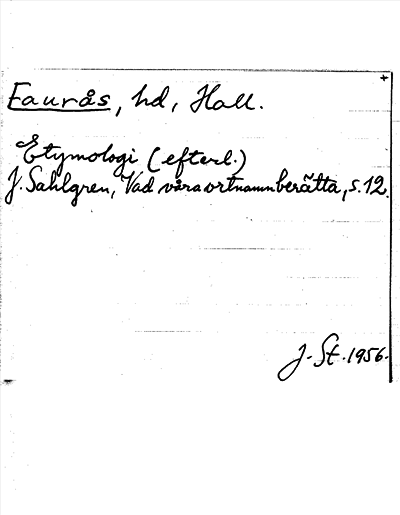 Faurås, hd, Hall.
Etymologi (efterl.)
J. Sahlgren, Vad våra ortnamn berätta, s. 12.
J. St. 1956.